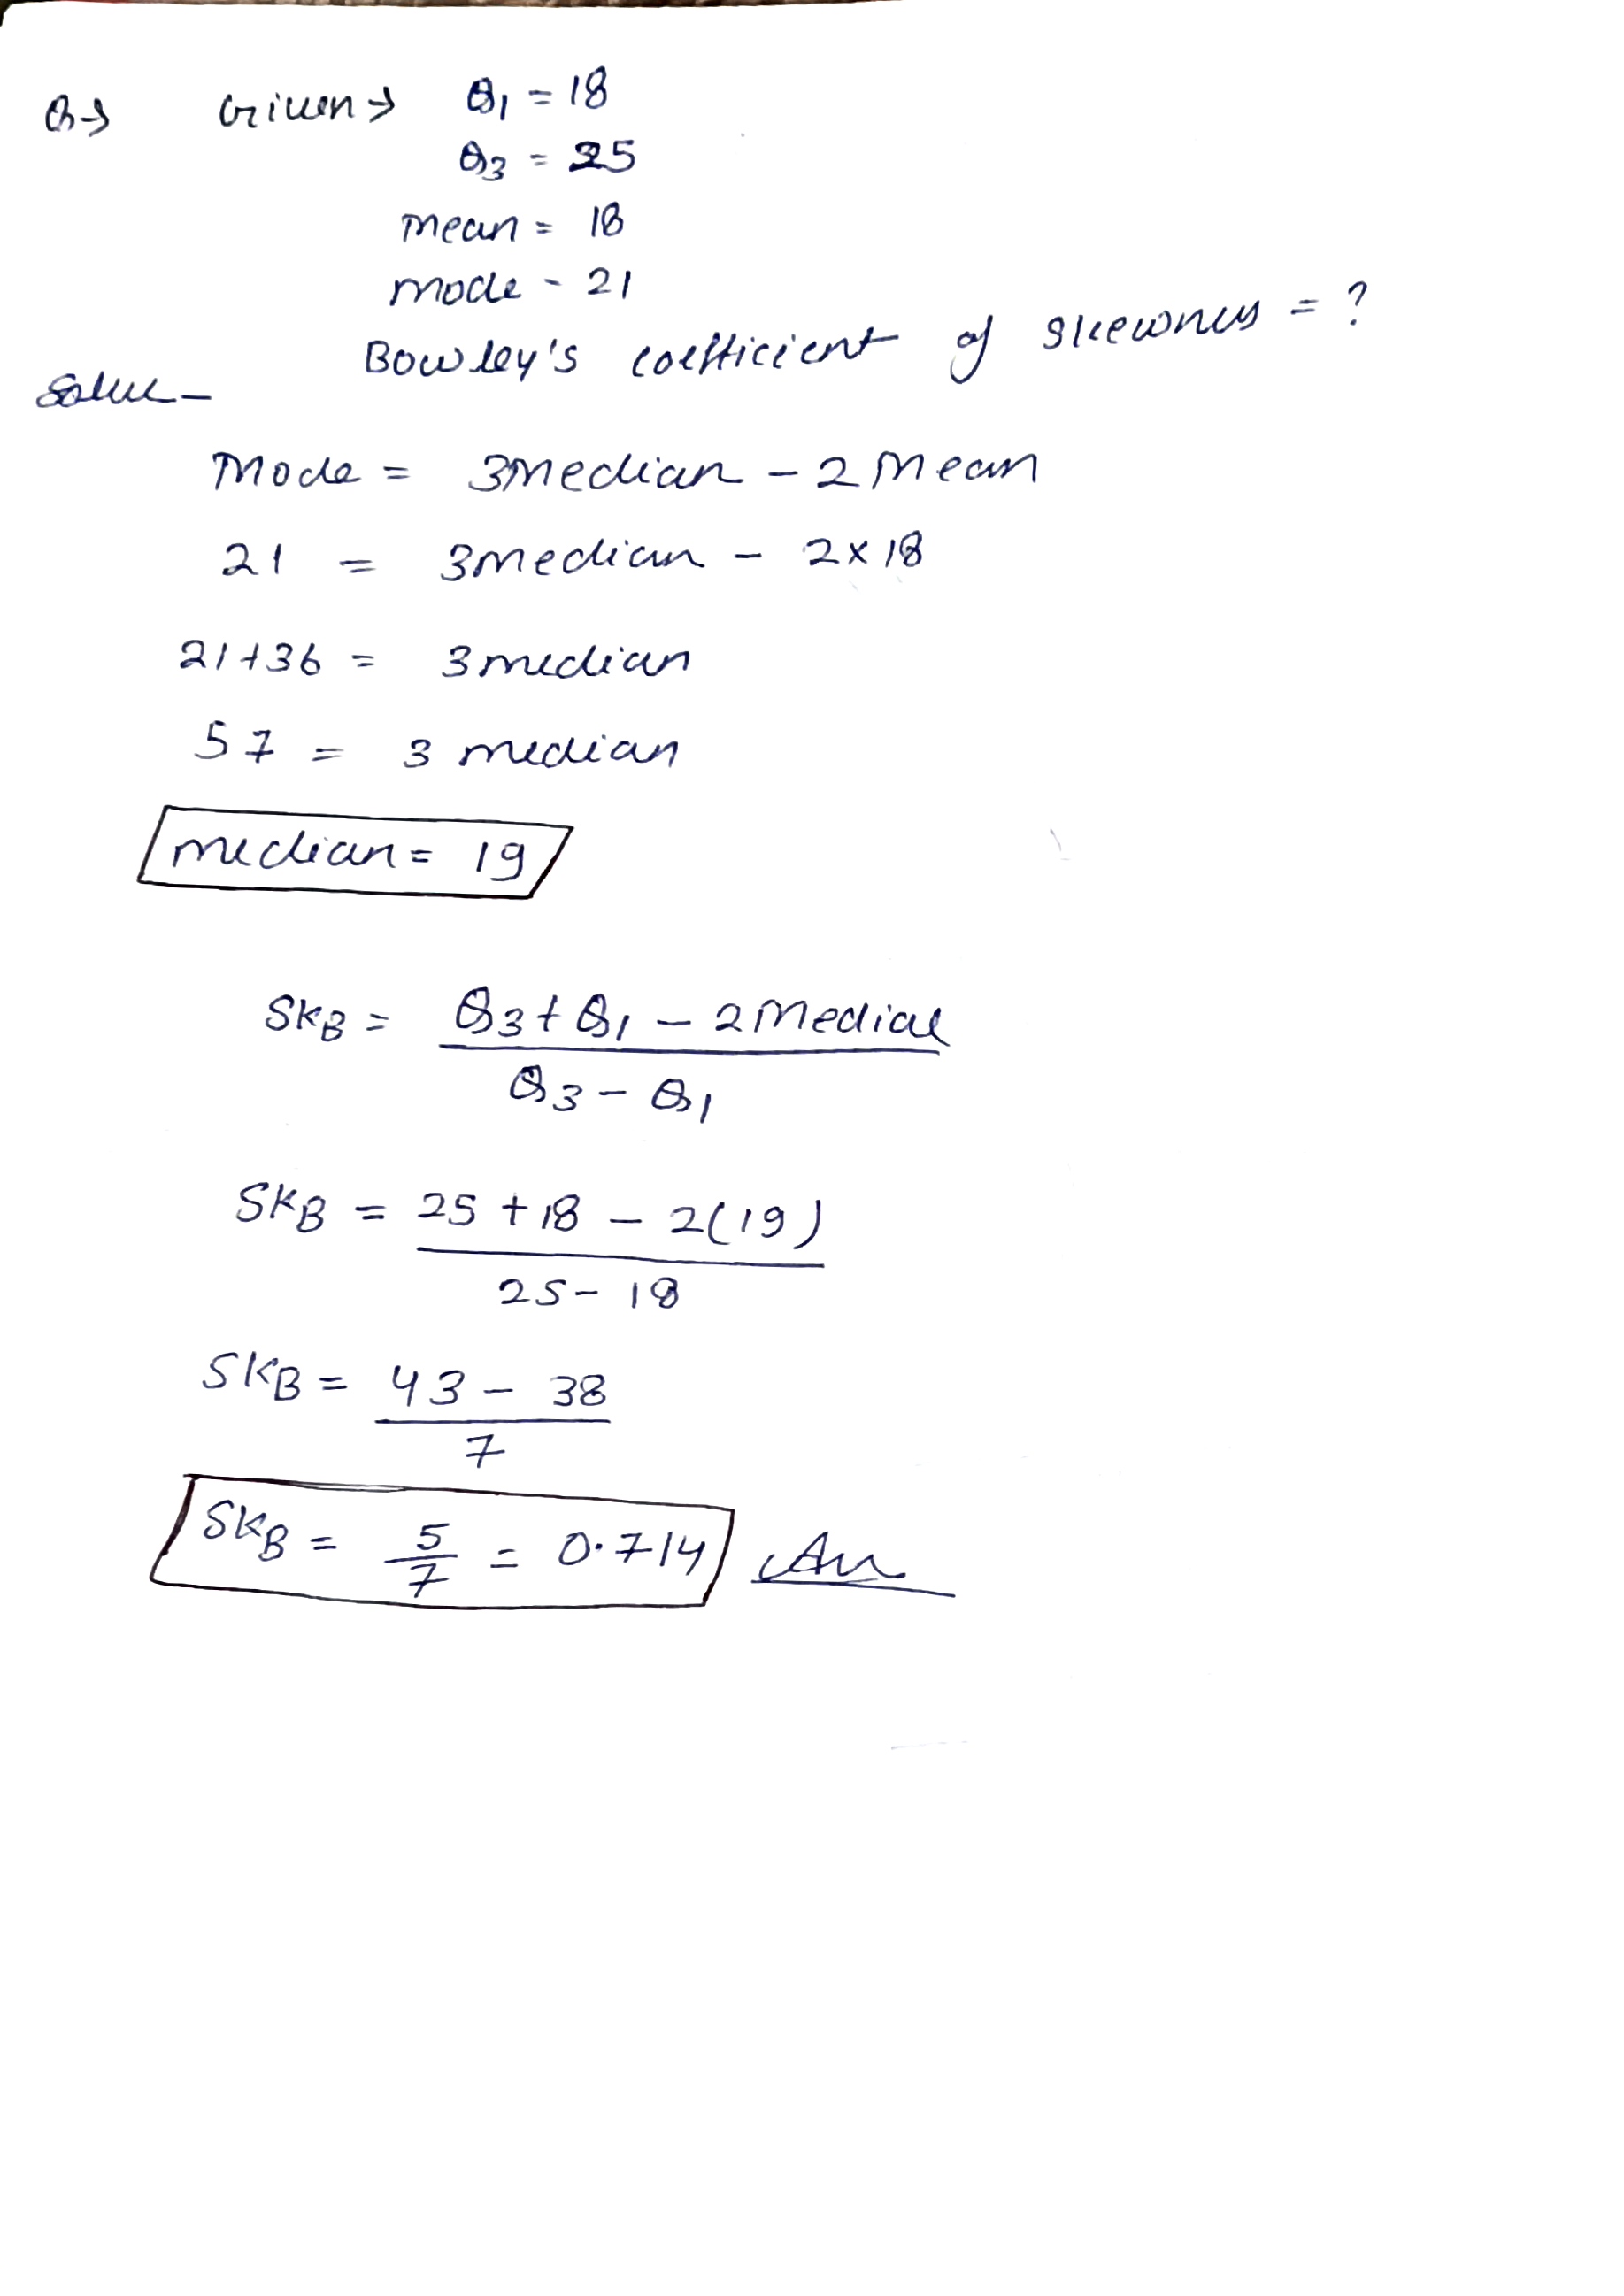 Q→ Given→ Q1 = 18
Q3 = 25
mean = 18
mode - 21
Bowley's coefficient of skewness = ?
Solue-
Mode = 3Median - 2 Mean
21 = 3median - 2×18
21+36 = 3median
57 = 3 median
median = 19
SKB = Q3+Q1 - 2Median
Q3 - Q1
SKB = 25 + 18 - 2(19)
25 - 18
SKB = 43 - 38
7
SKB = 5/7 = 0.714 Ans